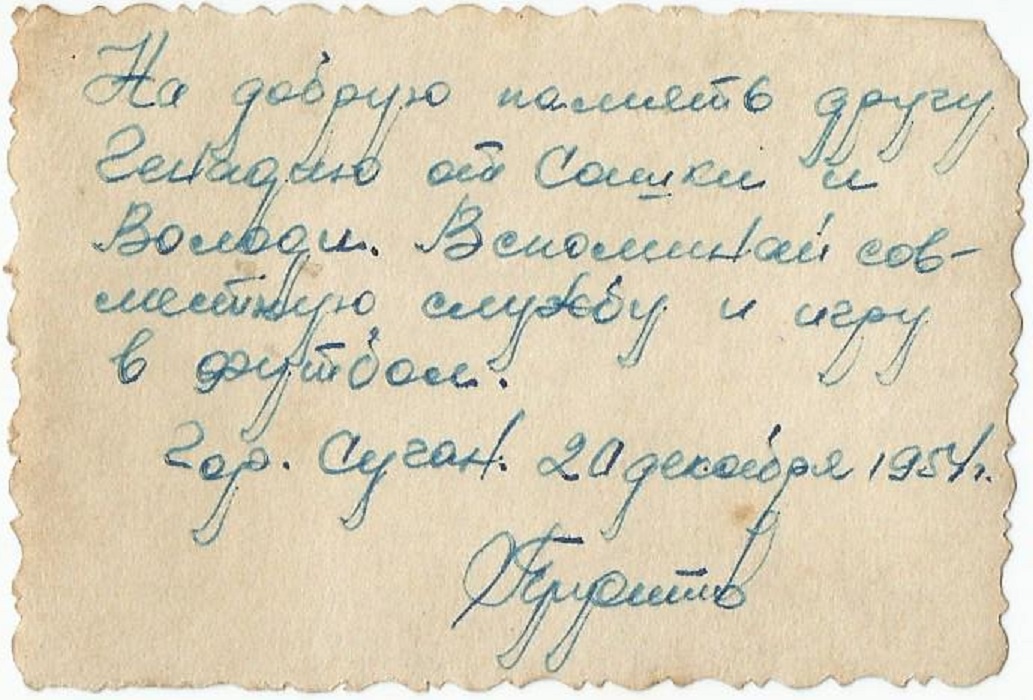 На добрую память другу
Генадию от Сашки и
Володи. Вспоминай сов-
местную службу и игру
в футбол.
Гор. Сучан. декабря 195